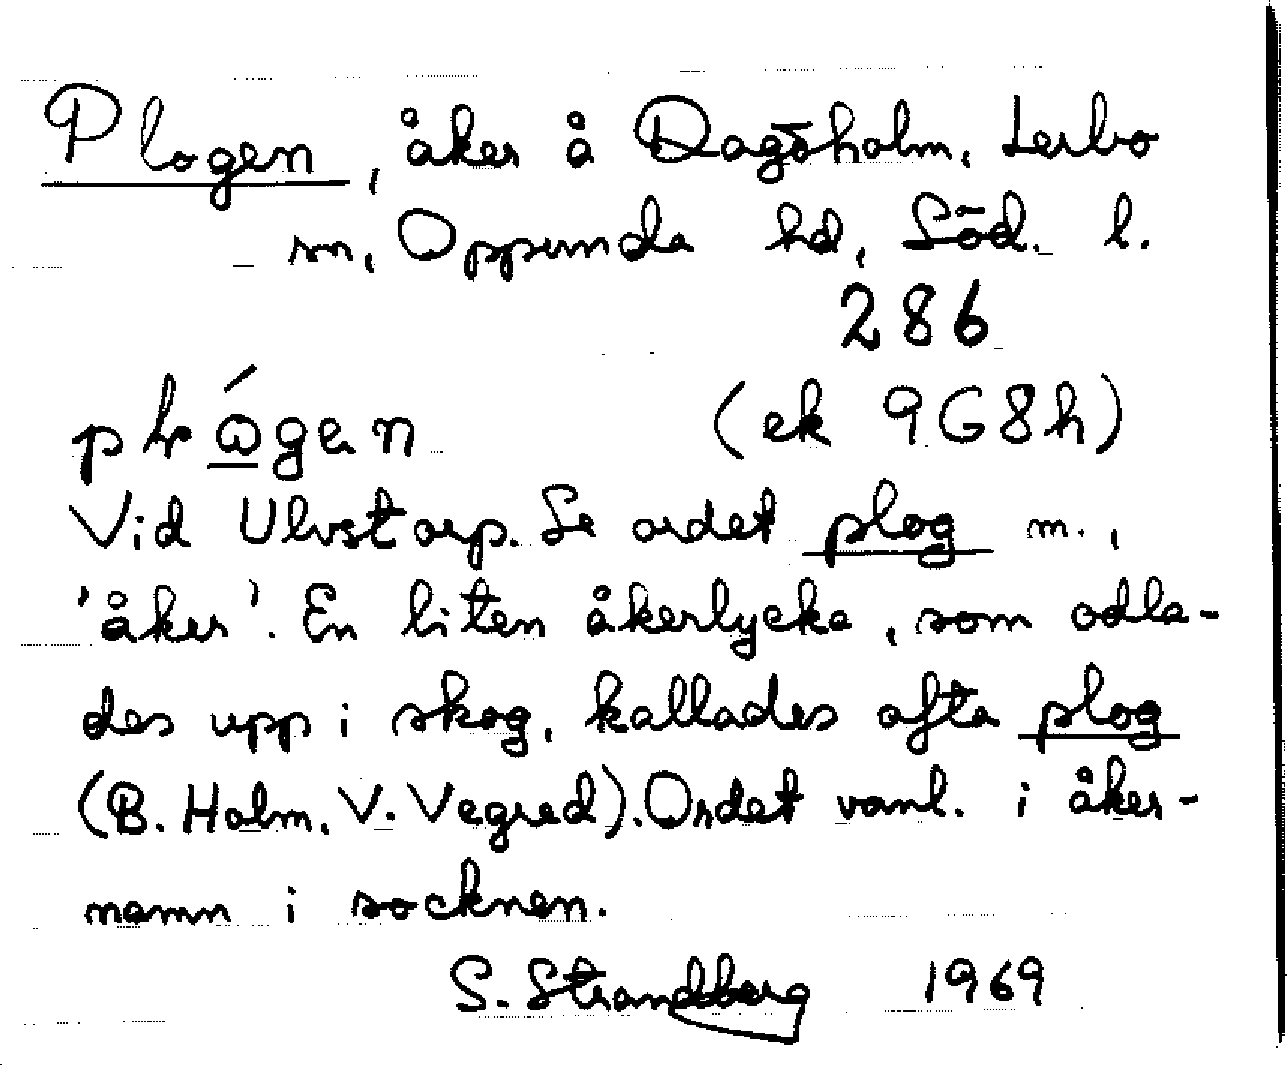 Plogen, åker å Dagöholm, Lerbo
sn, Oppunda hd, Söd. l.
286
plågen (ek 9G8h)
Vid Ulvstorp. Se ordet plog m.,
'åker'. En liten åkerlycka, som odla-
des upp i skog, kallades ofta plog
(B. Holm, V. Vegred). Ordet vanl. i åker-
namn i socknen.
S. Strandberg 1969